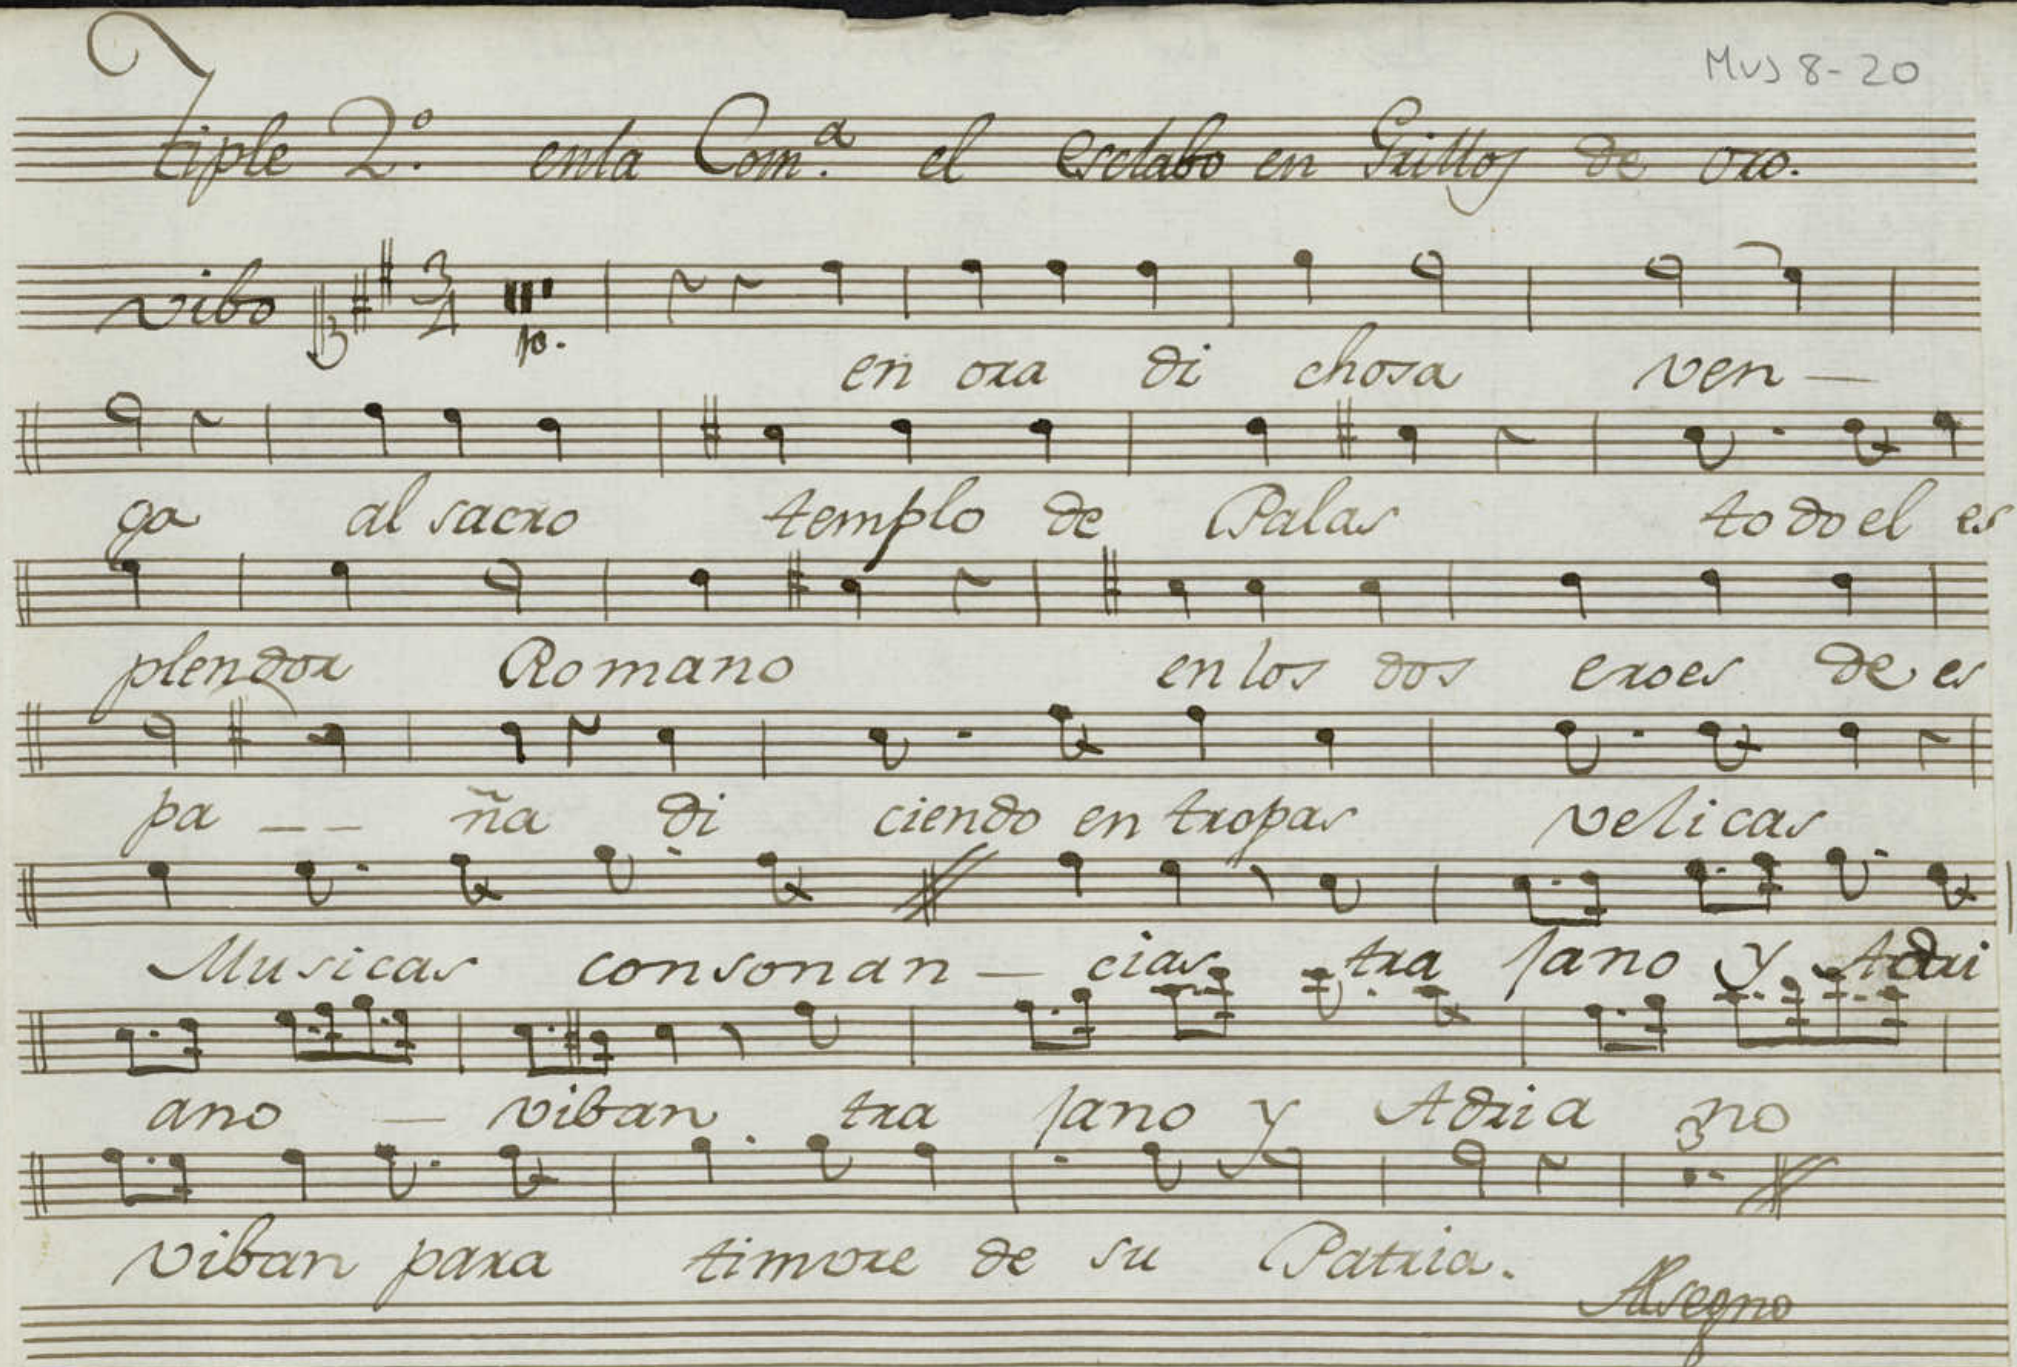 Mus 8-20
Tiple 2º. en la Com.ª el esclabo en Grillos de oro.
vibo 3/4 10.
en ora di chosa ven —
ga al sacro templo de Palas todo el es
plendor Romano en los dos eroes de es
pa — — ña di ciendo en tropas velicas
Musicas consonan — cias tra Jano y Adri
ano — viban tra Jano y Adria no
3
viban para timore de su Patria.
Al segno